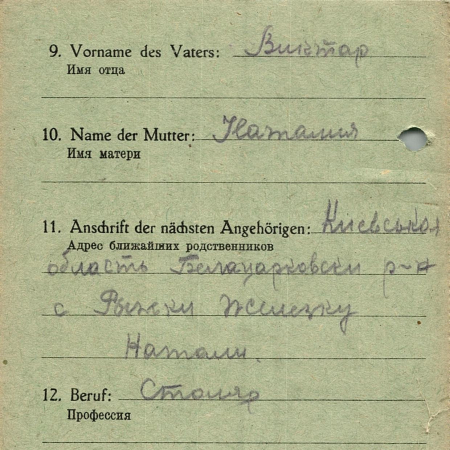 9. Vorname des Vaters: Виктар
Имя отца
10. Name der Mutter: Наталия
Имя матери
11. Anschrift der nächsten Angehörigen: Киевськая
Адрес ближайших родственников
область Белацарковски р-н
с
Натали.
12. Beruf: Столяр
Профессия